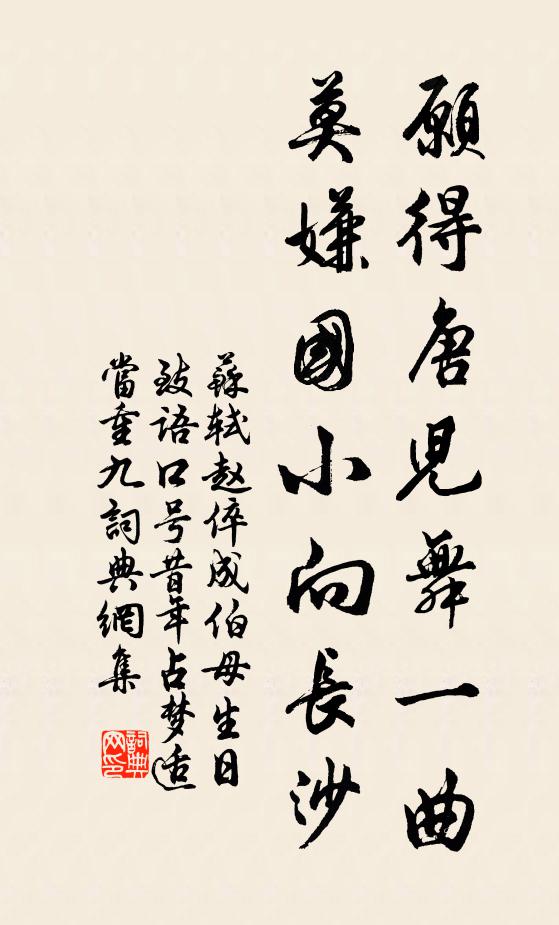 願得唐兒舞一曲
莫嫌國小向長沙
蘇軾赵倅成伯母生日
致語口号昔年占梦适
當重九詞典網集
詞典网印